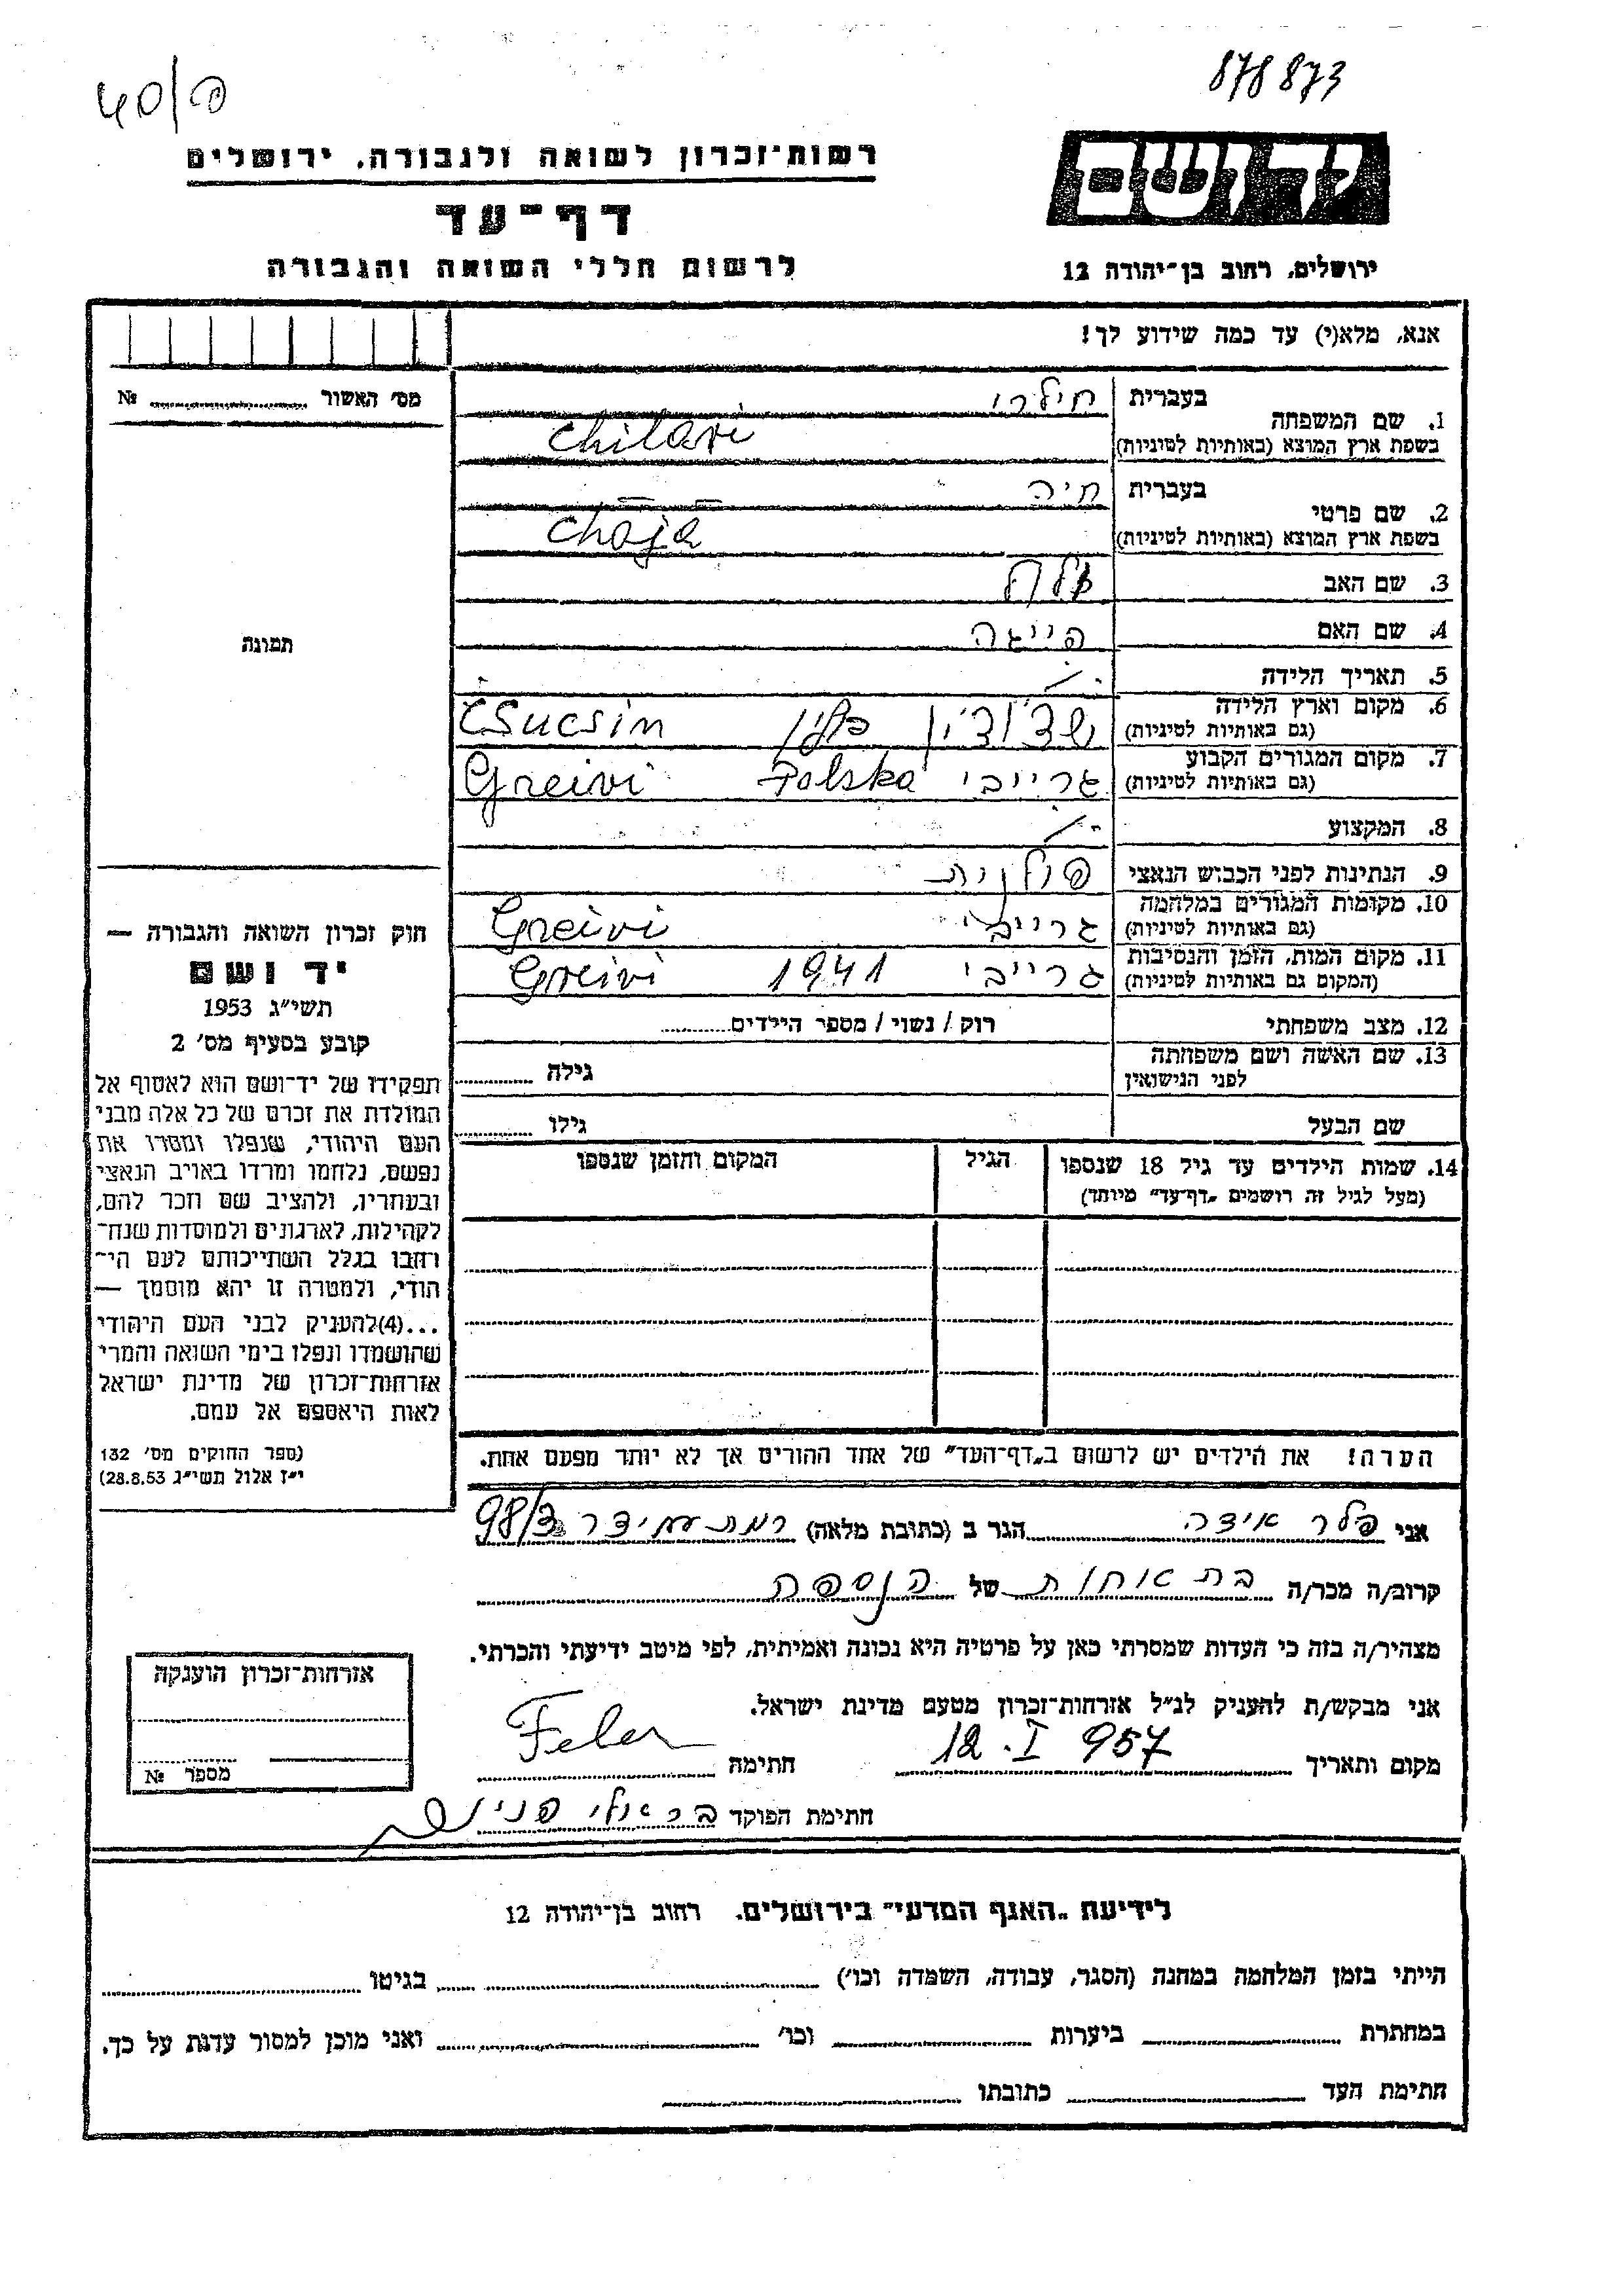 878873
40/פ
יד ושם
רשות־זכרון לשואה ולגבורה, ירושלים
דף־עד
לרשום חללי השואה והגבורה
ירושלים, רחוב בן־יהודה 12
אנא, מלא(י) עד כמה שידוע לך!
מס' האשור № 
1. שם המשפחה בעברית חילרי
בשפת ארץ המוצא (באותיות לטיניות) Chilari
2. שם פרטי בעברית חיה
בשפת ארץ המוצא (באותיות לטיניות) Chaja
3. שם האב
4. שם האם פייגה
5. תאריך הלידה ./.
6. מקום וארץ הלידה (גם באותיות לטיניות) פולין Csucsin
7. מקום המגורים הקבוע (גם באותיות לטיניות) גרייבי Polska Greivi
8. המקצוע ./.
9. הנתינות לפני הכבוש הנאצי פולנית
10. מקומות המגורים במלחמה (גם באותיות לטיניות) גרייבי Greivi
11. מקום המות, הזמן והנסיבות (המקום גם באותיות לטיניות) גרייבי 1941 Greivi
12. מצב משפחתי רוק / נשוי / מספר הילדים
13. שם האשה ושם משפחתה לפני הנישואין גילה
שם הבעל גילו
14. שמות הילדים עד גיל 18 שנספו הגיל המקום והזמן שנספו
(מעל לגיל זה רושמים „דף־עד” מיוחד)
הערה! את הילדים יש לרשום ב„דף־העד” של אחד ההורים אך לא יותר מפעם אחת.
תמונה
חוק זכרון השואה והגבורה —
יד ושם
תשי"ג 1953
קובע בסעיף מס' 2
תפקידו של יד־ושם הוא לאסוף אל
המולדת את זכרם של כל אלה מבני
העם היהודי, שנפלו ומסרו את
נפשם, נלחמו ומרדו באויב הנאצי
ובעוזריו, ולהציב שם וזכר להם,
לקהילות, לארגונים ולמוסדות שנח־
רבו בגלל השתייכותם לעם הי־
הודי, ולמטרה זו יהא מוסמך —
...(4) להעניק לבני העם היהודי
שהושמדו ונפלו בימי השואה והמרי
אזרחות־זכרון של מדינת ישראל
לאות היאספם אל עמם.
(ספר החוקים מס' 132
י"ז אלול תשי"ג 28.8.53)
אני פלר אידה הגר ב (כתובת מלאה) רמת עמידר 98/3
קרוב/ה מכר/ה בת אחות של הנספה
מצהיר/ה בזה כי העדות שמסרתי כאן על פרטיה היא נכונה ואמיתית, לפי מיטב ידיעתי והכרתי.
אני מבקש/ת להעניק לנ"ל אזרחות־זכרון מטעם מדינת ישראל.
מקום ותאריך 12.I 957 חתימה Feler
חתימת הפוקד
אזרחות־זכרון הוענקה
מספר №
לידיעת „האגף המדעי” בירושלים, רחוב בן־יהודה 12
הייתי בזמן המלחמה במחנה (הסגר, עבודה, השמדה וכו') בגיטו
במחתרת ביערות וכו' ואני מוכן למסור עדות על כך.
חתימת העד כתובתו